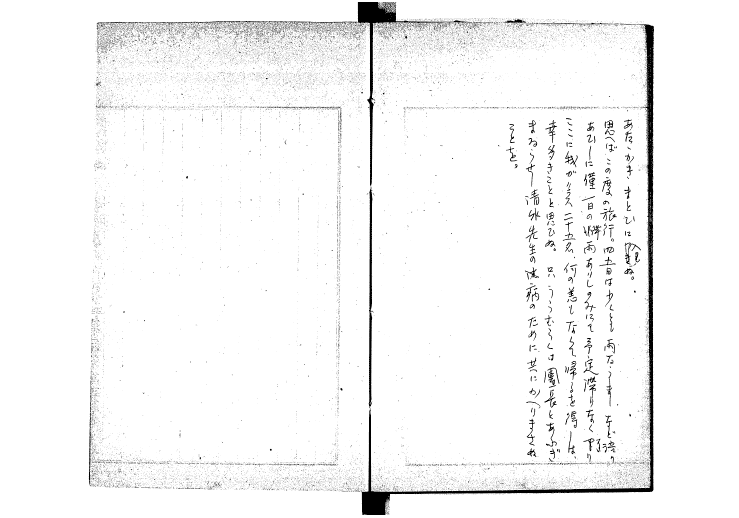 あたゝかきまとひに入りぬ。
思へばこの度の旅行。四五日は少くとも雨ならましなど語り
あひしに僅一日の雨ありしのみにて予定滞りなく
ここに我が二十五名、何の恙もなくて帰るを得しは、
幸多きことと思ひぬ。只うらむらくは團長とあふぎ
まゐらせし清水先生の病のために共にかへりまさぬ
ことを。